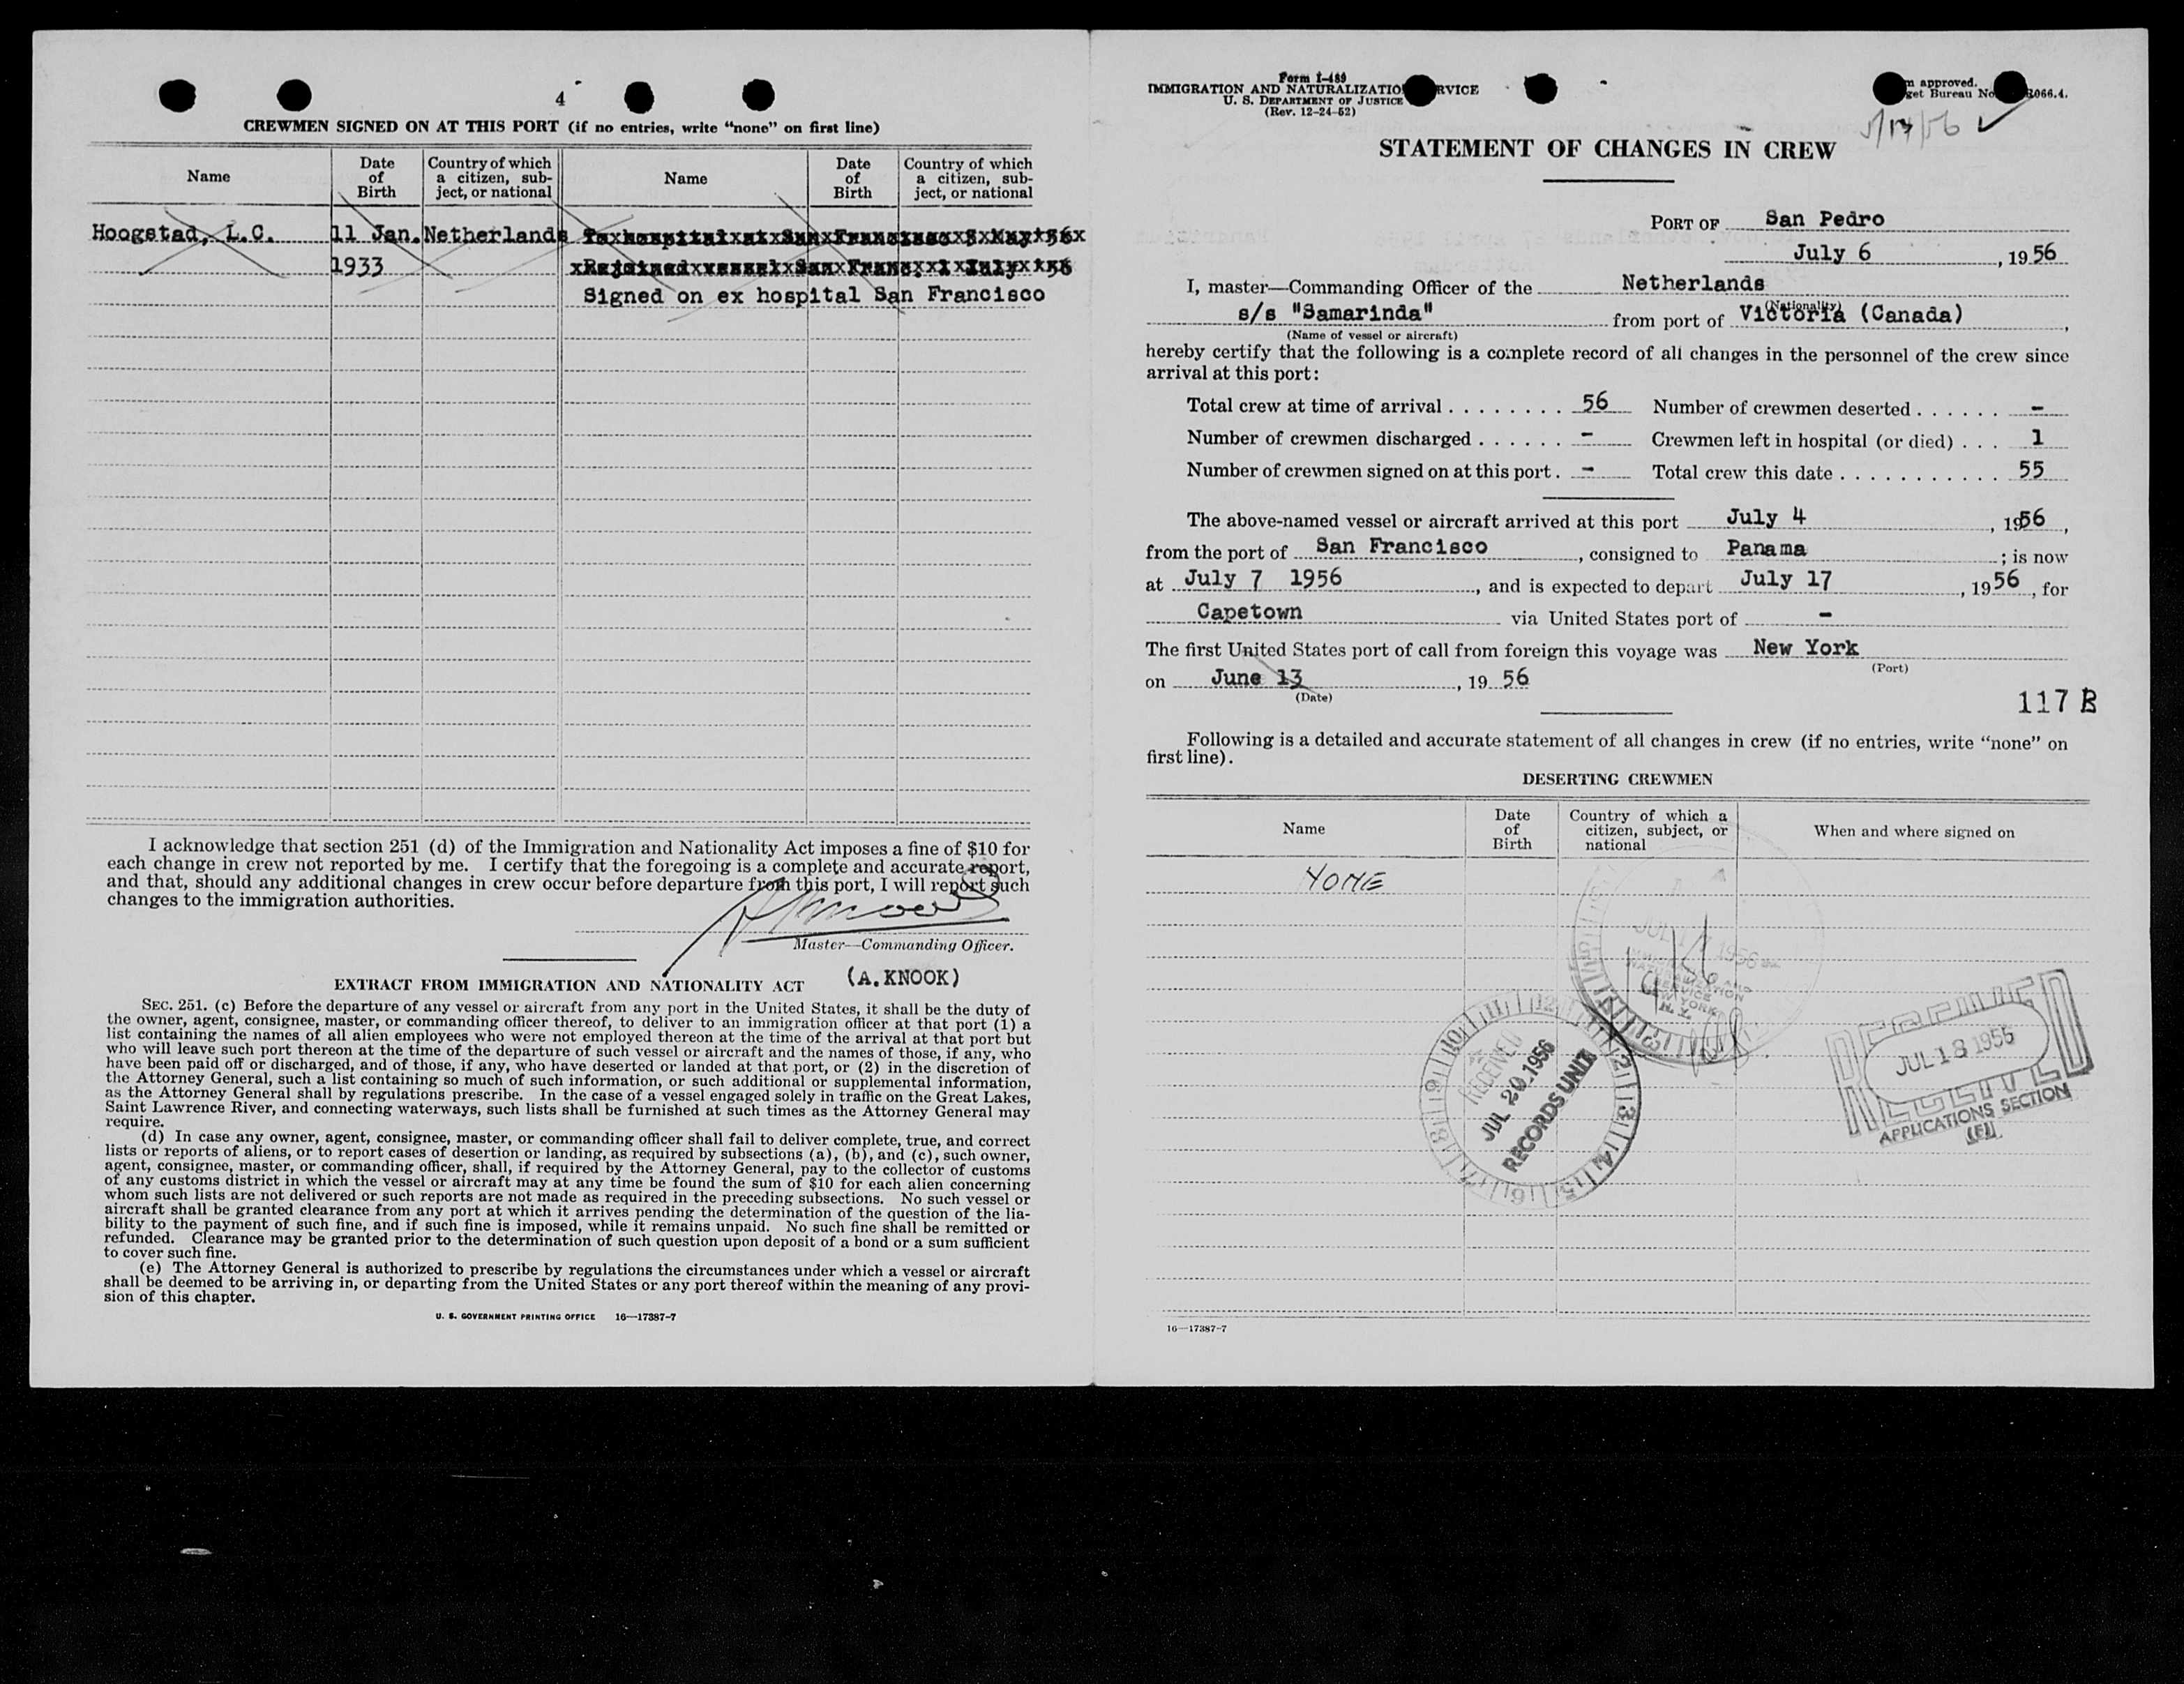 4
CREWMEN SIGNED ON AT THIS PORT (if no entries, write "none" on first line)
Name
Date of Birth
Country of which a citizen, subject, or national
Name
Date of Birth
Country of which a citizen, subject, or national
Hoogstad, L.C. 11 Jan. Netherlands To hospital at San Francisco 8 May '56
1933 Rejoined vessel San Franc. 1 July '56
Signed on ex hospital San Francisco
I acknowledge that section 251 (d) of the Immigration and Nationality Act imposes a fine of $10 for
each change in crew not reported by me. I certify that the foregoing is a complete and accurate report,
and that, should any additional changes in crew occur before departure from this port, I will report such
changes to the immigration authorities.
Master—Commanding Officer.
(A. KNOOK)
EXTRACT FROM IMMIGRATION AND NATIONALITY ACT
SEC. 251. (c) Before the departure of any vessel or aircraft from any port in the United States, it shall be the duty of
the owner, agent, consignee, master, or commanding officer thereof, to deliver to an immigration officer at that port (1) a
list containing the names of all alien employees who were not employed thereon at the time of the arrival at that port but
who will leave such port thereon at the time of the departure of such vessel or aircraft and the names of those, if any, who
have been paid off or discharged, and of those, if any, who have deserted or landed at that port, or (2) in the discretion of
the Attorney General, such a list containing so much of such information, or such additional or supplemental information,
as the Attorney General shall by regulations prescribe. In the case of a vessel engaged solely in traffic on the Great Lakes,
Saint Lawrence River, and connecting waterways, such lists shall be furnished at such times as the Attorney General may
require.
(d) In case any owner, agent, consignee, master, or commanding officer shall fail to deliver complete, true, and correct
lists or reports of aliens, or to report cases of desertion or landing, as required by subsections (a), (b), and (c), such owner,
agent, consignee, master, or commanding officer, shall, if required by the Attorney General, pay to the collector of customs
of any customs district in which the vessel or aircraft may at any time be found the sum of $10 for each alien concerning
whom such lists are not delivered or such reports are not made as required in the preceding subsections. No such vessel or
aircraft shall be granted clearance from any port at which it arrives pending the determination of the question of the lia-
bility to the payment of such fine, and if such fine is imposed, while it remains unpaid. No such fine shall be remitted or
refunded. Clearance may be granted prior to the determination of such question upon deposit of a bond or a sum sufficient
to cover such fine.
(e) The Attorney General is authorized to prescribe by regulations the circumstances under which a vessel or aircraft
shall be deemed to be arriving in, or departing from the United States or any port thereof within the meaning of any provi-
sion of this chapter.
U. S. GOVERNMENT PRINTING OFFICE 16—17387-7
Form I-489
IMMIGRATION AND NATURALIZATIO RVICE
U. S. DEPARTMENT OF JUSTICE
(Rev. 12-24-52)
approved.
get Bureau No. 066.4.
STATEMENT OF CHANGES IN CREW
PORT OF San Pedro
July 6, 1956
I, master—Commanding Officer of the Netherlands
(Nationality)
s/s "Samarinda" from port of Victoria (Canada),
(Name of vessel or aircraft)
hereby certify that the following is a complete record of all changes in the personnel of the crew since
arrival at this port:
Total crew at time of arrival . . . . . . . . 56 Number of crewmen deserted . . . . . . -
Number of crewmen discharged . . . . . . - Crewmen left in hospital (or died) . . . 1
Number of crewmen signed on at this port . - Total crew this date . . . . . . . . . . . 55
The above-named vessel or aircraft arrived at this port July 4, 1956,
from the port of San Francisco, consigned to Panama; is now
at July 7 1956, and is expected to depart July 17, 1956, for
Capetown via United States port of -
The first United States port of call from foreign this voyage was New York
(Port)
on June 13, 19 56
(Date)
117 B
Following is a detailed and accurate statement of all changes in crew (if no entries, write "none" on
first line).
DESERTING CREWMEN
Name
Date of Birth
Country of which a citizen, subject, or national
When and where signed on
NONE
JUL 17 1956
RECEIVED
JUL 20 1956
RECORDS UNIT
RECEIVED
JUL 18 1956
APPLICATIONS SECTION
16—17387-7